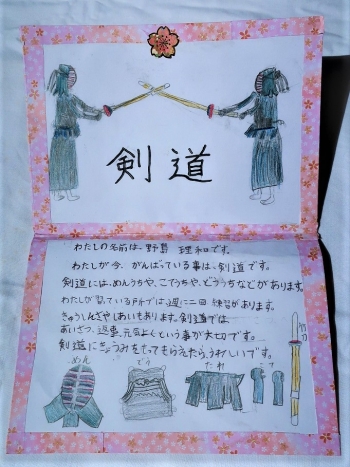 剣道
わたしの名前は、野島 理和です。
わたしが今、がんばっている事は、剣道です。
剣道には、めんうちや、こてうちや、どううちなどが あります。
わたしが 習っている所では、週に二回 練習が あります。
きゅうしんさや しあいも あります。剣道では、
あいさつ、返事、元気よくという事が 大切です。
剣道にきょうみをもってもらえたら、うれしいです。
めん
どう
たれ
こて
竹刀